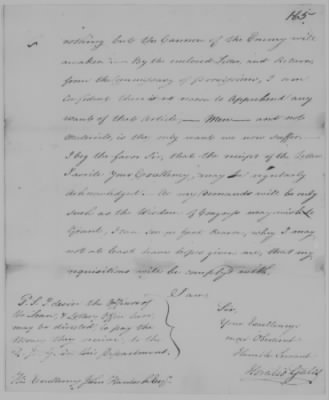 165
nothing but the Cannon of the Enemy will
awaken — By the enclosed Letter, and Return,
from the Commissary of Provisions, I am
Confident there is no reason to apprehend any
want of that Article, — Men — and not
materials, is the only want we now suffer.
I beg the favor Sir, that the receipt of the Letters
I write Your Excellency, may be regularly
acknowledged. As my Demands will be only
such as the Wisdom of Congress may wish to
Grant, I can see no just reason, why I may
not at least have hopes given me, that my
requisitions will be comply'd with.
I am
Sir,
Your Excellency's
most Obedient
Humble Servant
Horatio Gates
P.S. I desire the Officers of
the Loan, & Lottery Office here,
may be directed, to pay the
Money they receive, to the
Q. M. G. in this Department.
His Excellency John Hancock Esqr.